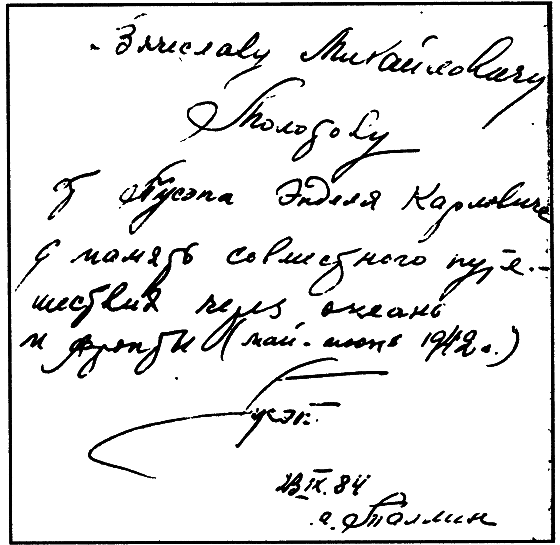 Вячеславу Михайловичу
Молотову
от Пусэпа Энделя Карловича
в память совместного путе-
шествия через океаны
и фронты (май-июнь 1942 г.)
23.IX.84
г. Таллин